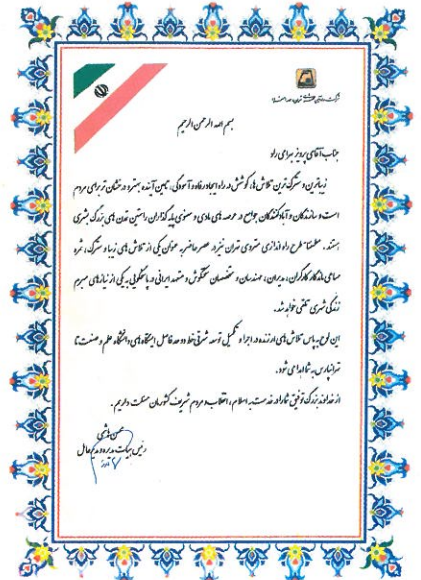 بسم الله الرحمن الرحیم
جناب آقای پرویز بهرامی راد
زیباترین و سترگ ترین تلاش ها، کوشش در راه ایجاد رفاه و آسودگی، تامین آینده بهتر و درخشان تر برای مردم
است و سازندگان و آبادکنندگان جوامع در عرصه های مادی و معنوی پایه گذاران راستین تمدن های بزرگ بشری
هستند. مطمئنا طرح راه اندازی متروی تهران نیز در عصر حاضر به عنوان یکی از تلاش های زیبا و سترگ، ثمره
مساعی ماندگار کارگران، مدیران، مهندسان و متخصصان سختکوش و متعهد ایرانی در پاسخگویی به یکی از نیازهای مبرم
زندگی شهری تلقی خواهد شد.
این لوح به پاس تلاش های ارزنده در اجرا و تکمیل توسعه شرقی خط دو حد فاصل ایستگاه های دانشگاه علم و صنعت تا
تهرانپارس به شما اهدا می شود.
از خداوند بزرگ توفیق شما را در خدمت به اسلام، انقلاب و مردم شریف کشورمان مسئلت داریم.
محسن هاشمی
رئیس هیات مدیره و مدیر عامل